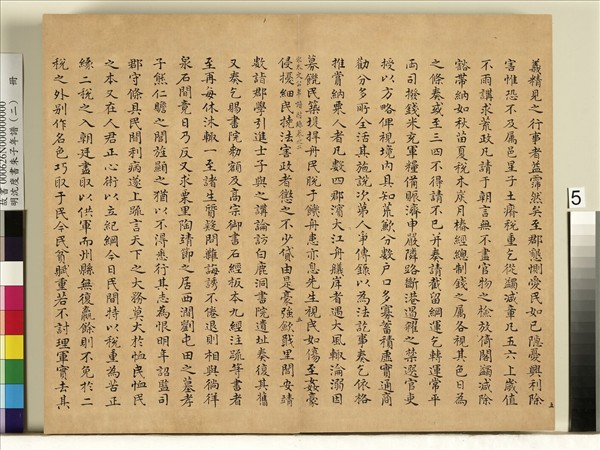 義精見之行事者益靄然矣至郡懇惻愛民如己隱憂興利除
害惟恐不及屬邑星子土瘠税重乞從蠲減章凡五六上歲值
不雨講求荒政凡請于朝言無不盡官物之檢放倚閣蠲減除
豁帶納如秋苗夏税木炭月椿經總制錢之屬各視其色目為
之條奏或至三四不得請不已并奏請截留綱運乞轉運常平
兩司撥錢米充軍糧備賑濟申嚴隣路斷港遏糴之禁選官吏
授以方畧俾視境内具知荒歉分數户口多寡蓄積虛實通商
勸分多所全活其施設次第人爭傳錄以為法訖事奏乞依格
推賞納粟人者凡數四郡濱大江舟艤岸者遇大風輒淪溺因
募饑民築堤捍舟民脱于饑舟患亦息先生視民如傷至姦豪
侵擾細民撓法害政者懲之不少貸由是豪強斂戢里閭安靖
數詣郡學引進士子與之講論訪白鹿洞書院遺址奏復其舊
又奏乞賜書院勅額及高宗御書石經板本九經注疏等書者
至再每休沐輒一至諸生質疑問難誨誘不倦退則相與徜徉
泉石間竟日乃反又求栗里陶靖節之居西澗劉屯田之墓孝
子熊仁贍之閭旌顯之猶以不得悉行其志為恨明年詔監司
郡守條具民間利病遂上疏言天下之大務莫大於恤民恤民
之本又在人君正心術以立紀綱今日民間特以税重為苦正
緣二税之入朝廷盡取以供軍而州縣無復贏餘則不免於二
税之外别作名色巧取于民今民貧賦重若不討理軍實去其
朱文公年譜目錄卷之二
五
故書000626N000000000
明沈度書朱子年譜(二) 冊
5